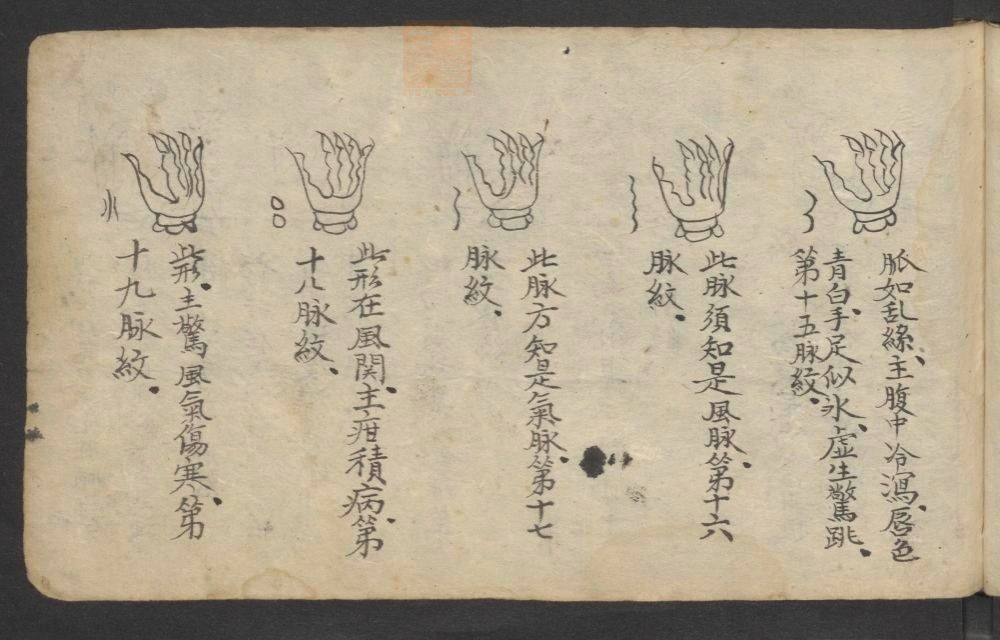 脈如乱絲、主腹中冷瀉、唇色
青白、手足似氷、虚生驚跳、
第十五脉紋、
此脉須知是風脉、第十六
脉紋、
此脉方知是氣脉、第十七
脉紋、
此形在風関、主疳積病、第
十八脉紋、
此形、主驚風氣傷寒、第
十九脉紋、